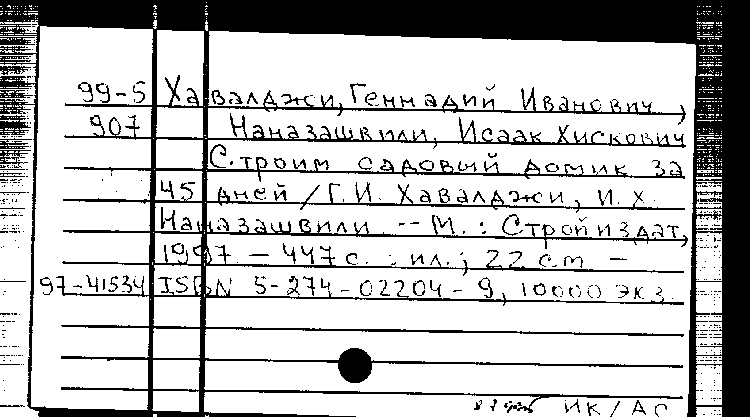 99-5 Хавалджи, Геннадий Иванович,
907 Наназашвили, Исаак Хискович
Строим садовый домик за
45 дней / Г.И. Хавалджи, И.Х.
Наназашвили -- М. : Стройиздат,
1997 - 447 с. : ил.; 22 см -
97-41534 ISBN 5-274-02204-9, 10000 экз.
ИК/АС